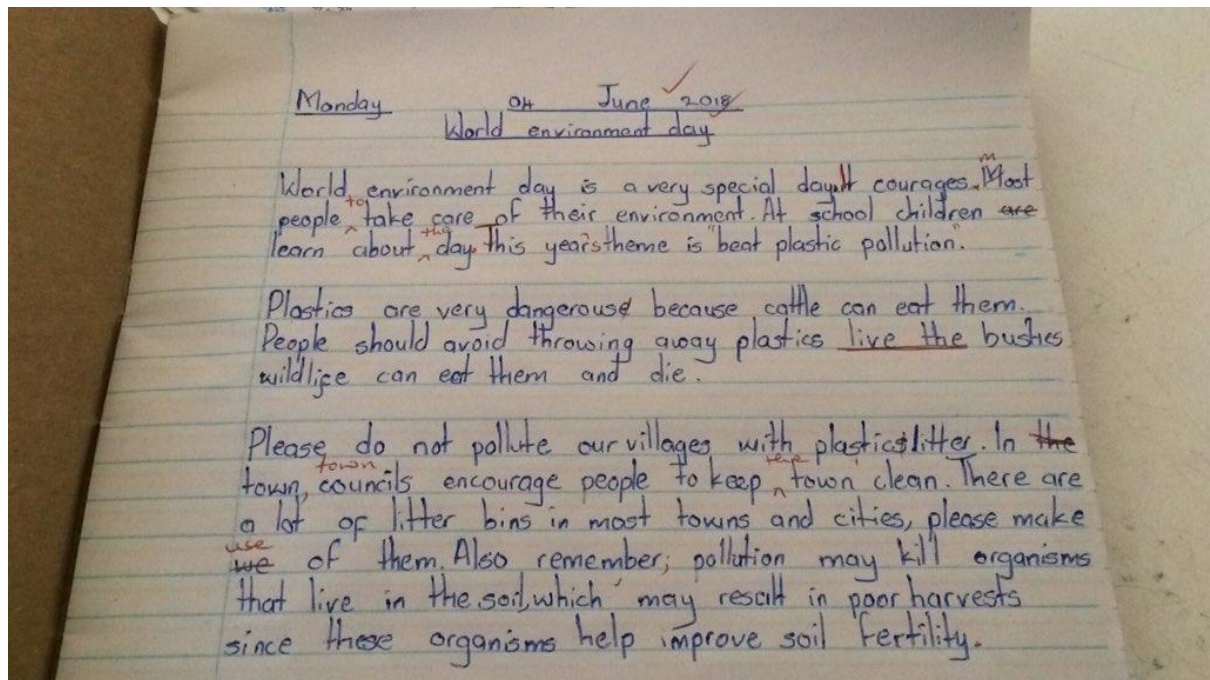 Monday 04 June 2018
World environment day
World environment day is a very special day. It courages. Most
people to take care of their environment. At school children are
learn about the day. This year's theme is "beat plastic pollution".
Plastics are very dangerouse because cattle can eat them.
People should avoid throwing away plastics live the bushes
wildlife can eat them and die.
Please do not pollute our villages with plastic litter. In the
town, town councils encourage people to keep town clean. There are
a lot of litter bins in most towns and cities, please make
use
we of them. Also remember; pollution may kill organisms
that live in the soil, which may result in poor harvests
since these organisms help improve soil fertility.